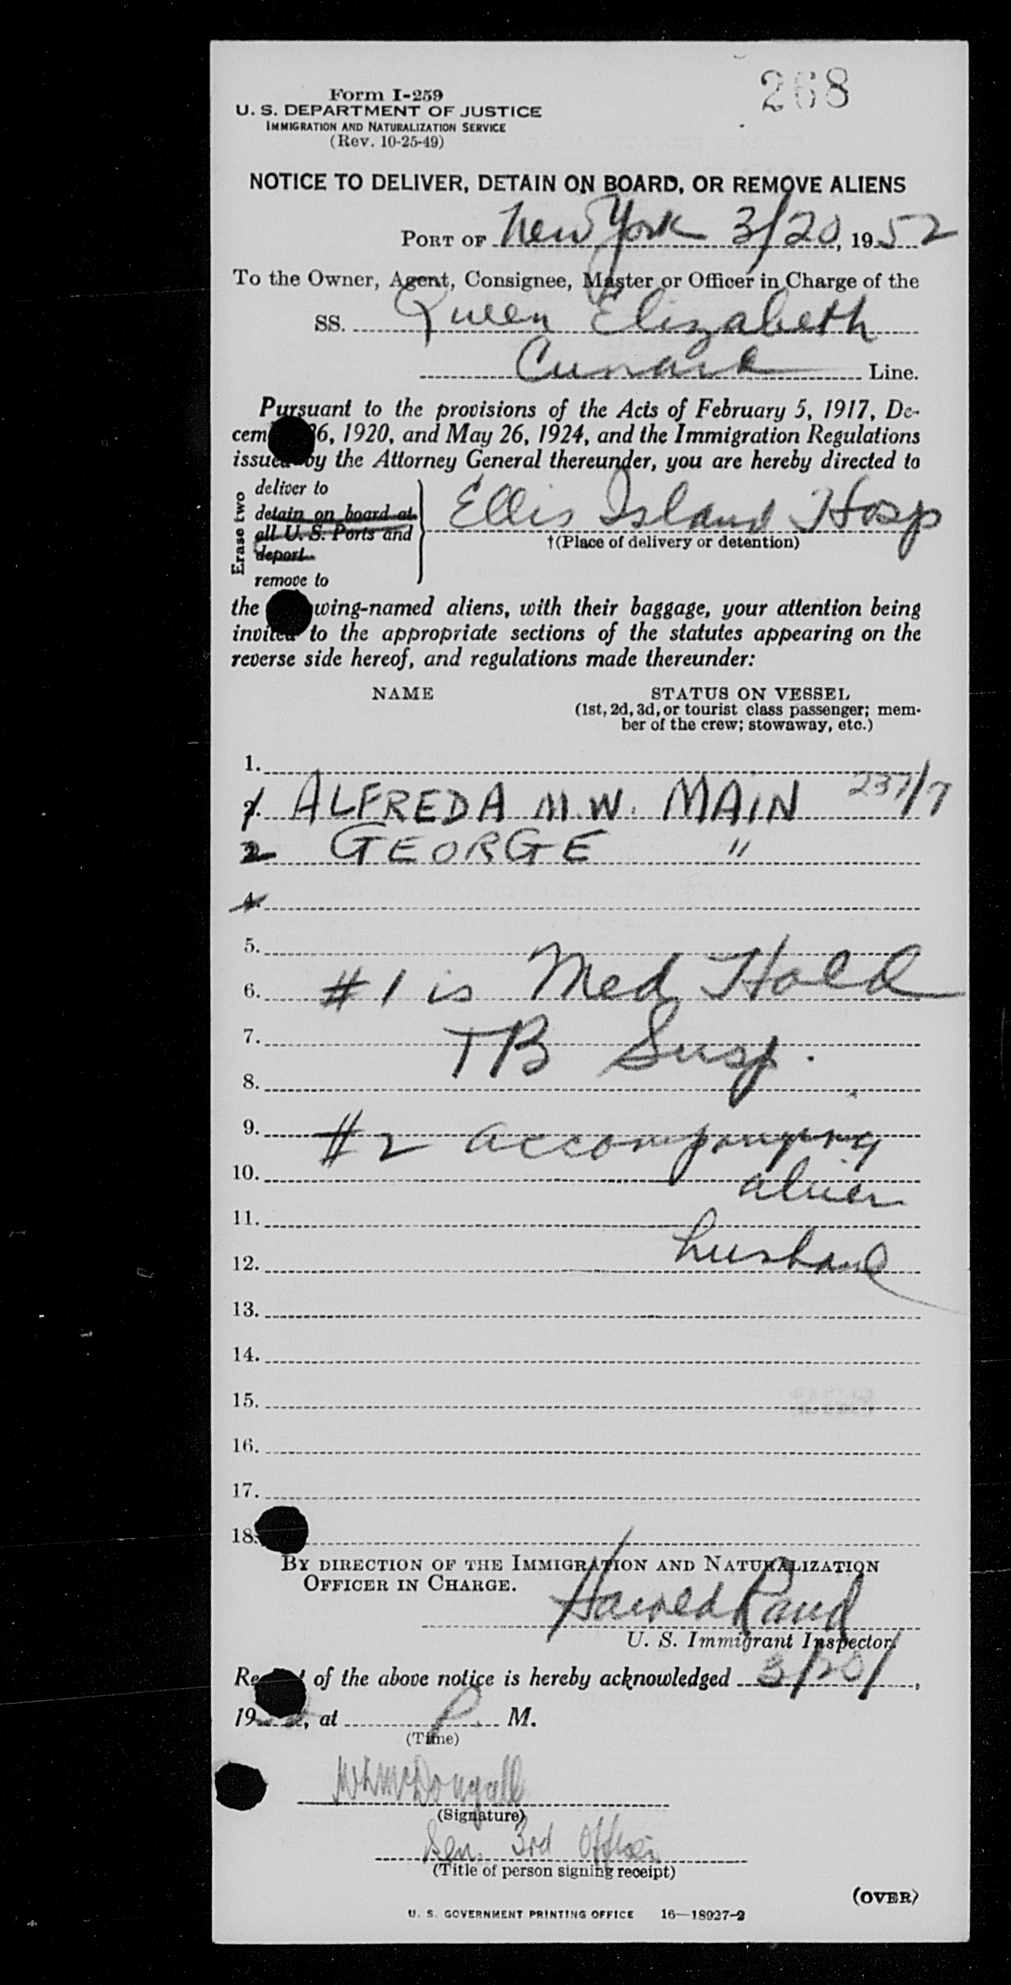 268
Form I-259
U. S. DEPARTMENT OF JUSTICE
IMMIGRATION AND NATURALIZATION SERVICE
(Rev. 10-25-49)
NOTICE TO DELIVER, DETAIN ON BOARD, OR REMOVE ALIENS
PORT OF New York 3/20, 1952
To the Owner, Agent, Consignee, Master or Officer in Charge of the
SS. Queen Elizabeth
Cunard Line.
Pursuant to the provisions of the Acts of February 5, 1917, De-
cem 26, 1920, and May 26, 1924, and the Immigration Regulations
issued by the Attorney General thereunder, you are hereby directed to
Erase two
deliver to
detain on board at
all U. S. Ports and
deport
remove to
Ellis Island Hosp
†(Place of delivery or detention)
the wing-named aliens, with their baggage, your attention being
invited to the appropriate sections of the statutes appearing on the
reverse side hereof, and regulations made thereunder:
NAME STATUS ON VESSEL
(1st, 2d, 3d, or tourist class passenger; mem-
ber of the crew; stowaway, etc.)
1.
1 ALFREDA M.W. MAIN 237/7
2 GEORGE "
4.
5.
6. #1 is Med Hold
7. TB Susp.
8.
9. #2 accompanying
10. alien
11.
12. husband
13.
14.
15.
16.
17.
18.
BY DIRECTION OF THE IMMIGRATION AND NATURALIZATION
OFFICER IN CHARGE.
Harold Rand
U. S. Immigrant Inspector
Re of the above notice is hereby acknowledged 3/20/,
19, at P. M.
(Time)
McDougall
(Signature)
Sen. 3rd Officer
(Title of person signing receipt)
(OVER)
U. S. GOVERNMENT PRINTING OFFICE 16—18927-2